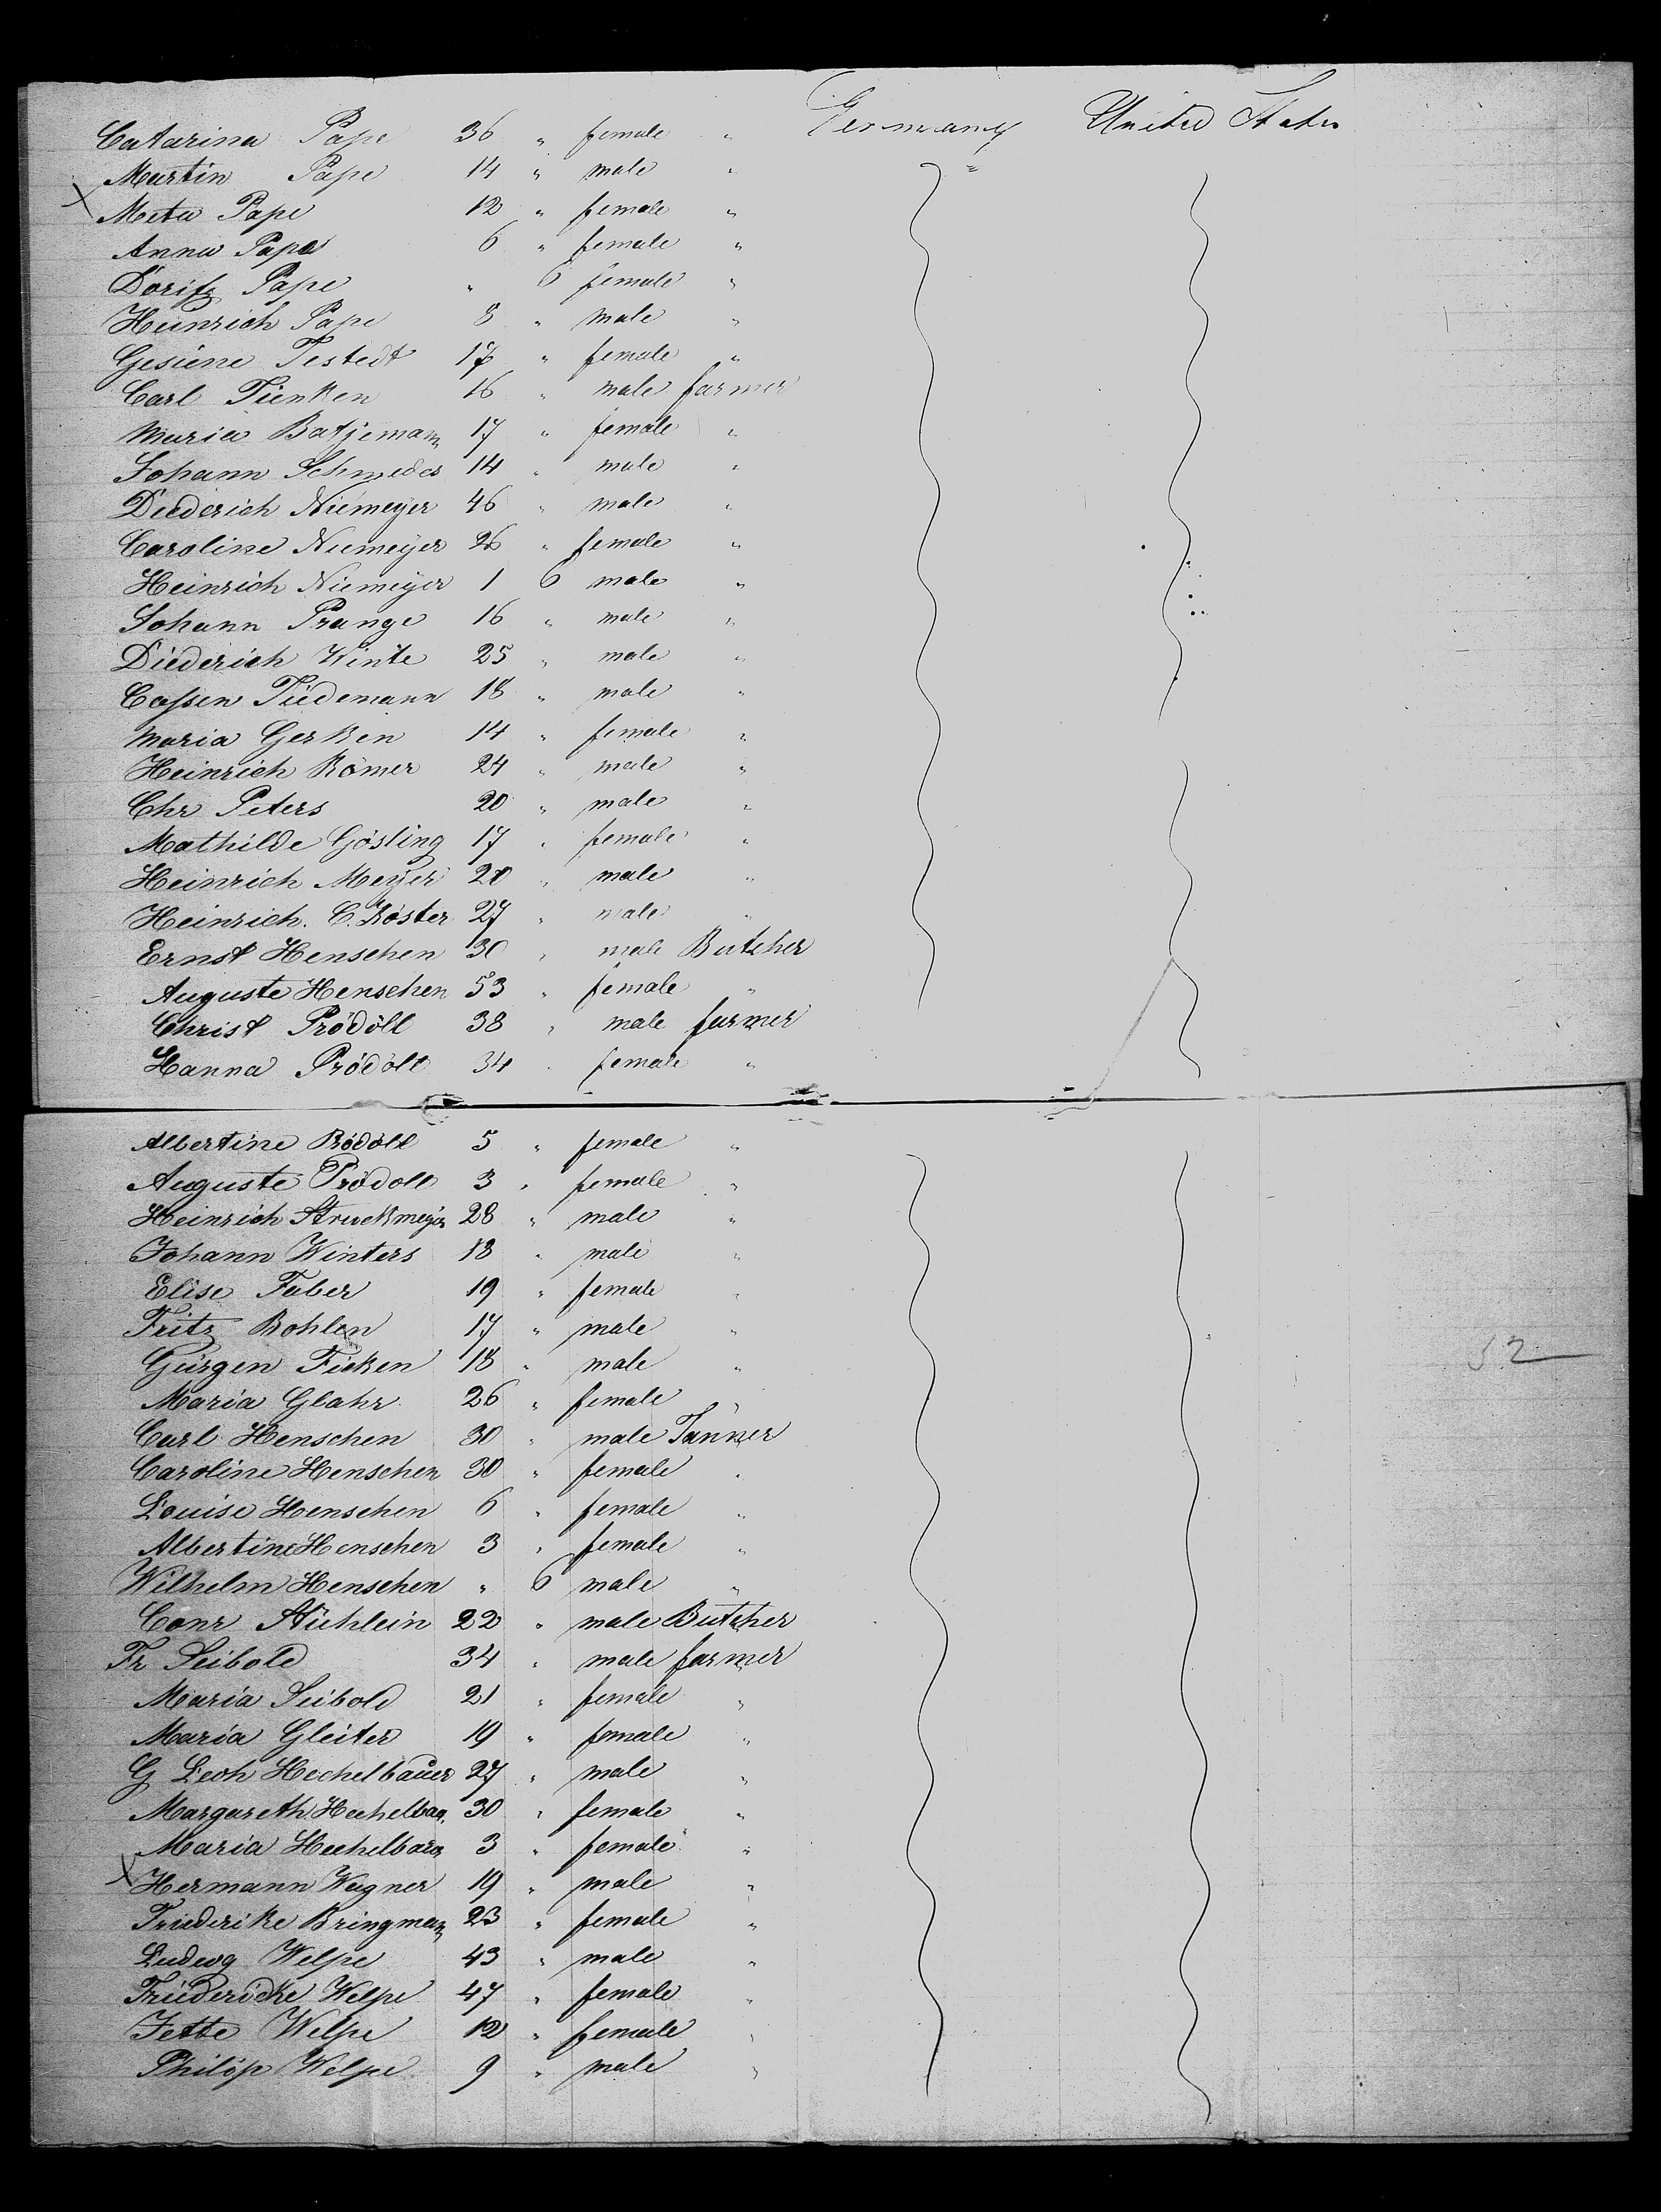 Catarina Pape 36 " female " Germany United States
Martin Pape 14 " male " "
x Meta Pape 12 " female "
Anna Pape 6 " female "
Pape " 6 female "
Heinrich Pape 8 " male "
Gesiene Testedt 17 " female "
Carl Tienken 16 " male farmer
Maria Batjemann 17 " female "
Johann Schmedes 14 " male "
Diederich Niemeyer 46 " male "
Caroline Niemeyer 26 " female "
Heinrich Niemeyer 1 6 male "
Johann Prange 16 " male "
Diederich Winte 25 " male "
Cassen Tiedemann 18 " male "
Maria Gerken 14 " female "
Heinrich Römer 24 " male "
Chr Peters 20 " male "
Mathilde Gösling 17 " female "
Heinrich Meyer 20 " male "
Heinrich. C. Köster 27 " male "
Ernst Henschen 30 " male Butcher
Auguste Henschen 53 " female "
Christ Prödöll 38 " male farmer
Hanna Prödöll 34 " female "
Albertine Prödöll 5 " female "
Auguste Prödoll 3 " female "
Heinrich Struckmeyer 28 " male "
Johann Winters 18 " male "
Elise Faber 19 " female "
Fritz Bohlen 17 " male "
Gürgen Ficken 18 " male "
Maria Glahr 26 " female "
Carl Henschen 30 " male Tanner
Caroline Henschen 30 " female "
Louise Henschen 6 " female "
Albertine Henschen 3 " female "
Wilhelm Henschen " 6 male "
Conr Stühlein 22 " male Butcher
Fr Seibold 34 " male farmer
Maria Seibold 21 " female "
Maria Gleiter 19 " female "
G Leoh Hechelbauer 27 " male "
Margareth Hechelbau. 30 " female "
Maria Hechelbau 3 " female "
x Hermann Wagner 19 " male "
Friederike Bringman 23 " female "
Ludewg Welpe 43 " male "
Friedericke Welpe 47 " female "
Jette Welpe 12 " female "
Philip Welpe 9 " male "
52